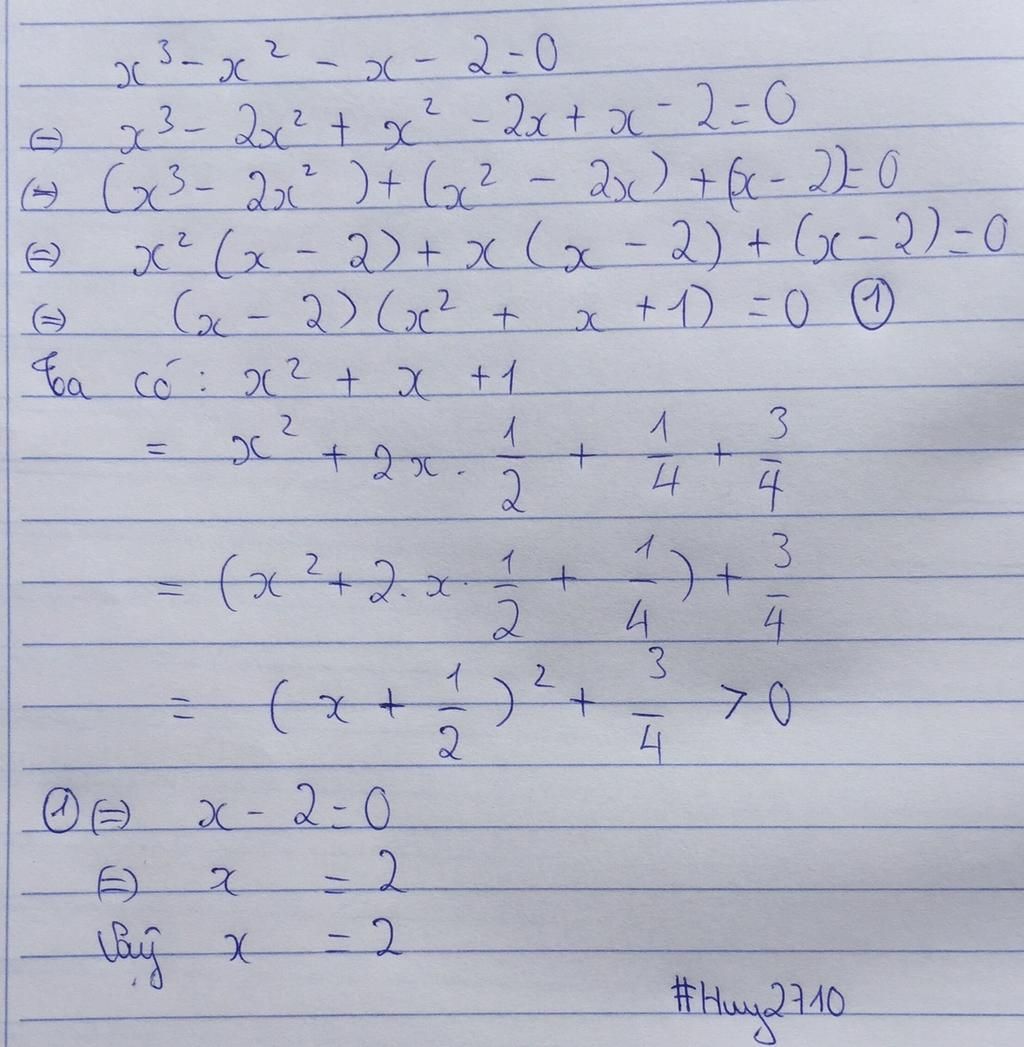 x³ - x² - x - 2 = 0
⇔ x³ - 2x² + x² - 2x + x - 2 = 0
⇔ (x³ - 2x²) + (x² - 2x) + (x - 2) = 0
⇔ x² (x - 2) + x (x - 2) + (x - 2) = 0
⇔ (x - 2) (x² + x + 1) = 0 ①
Ta có: x² + x + 1
= x² + 2x . 1/2 + 1/4 + 3/4
= (x² + 2 . x . 1/2 + 1/4) + 3/4
= (x + 1/2)² + 3/4 > 0
① ⇔ x - 2 = 0
⇔ x = 2
Vậy x = 2
#Huy2710